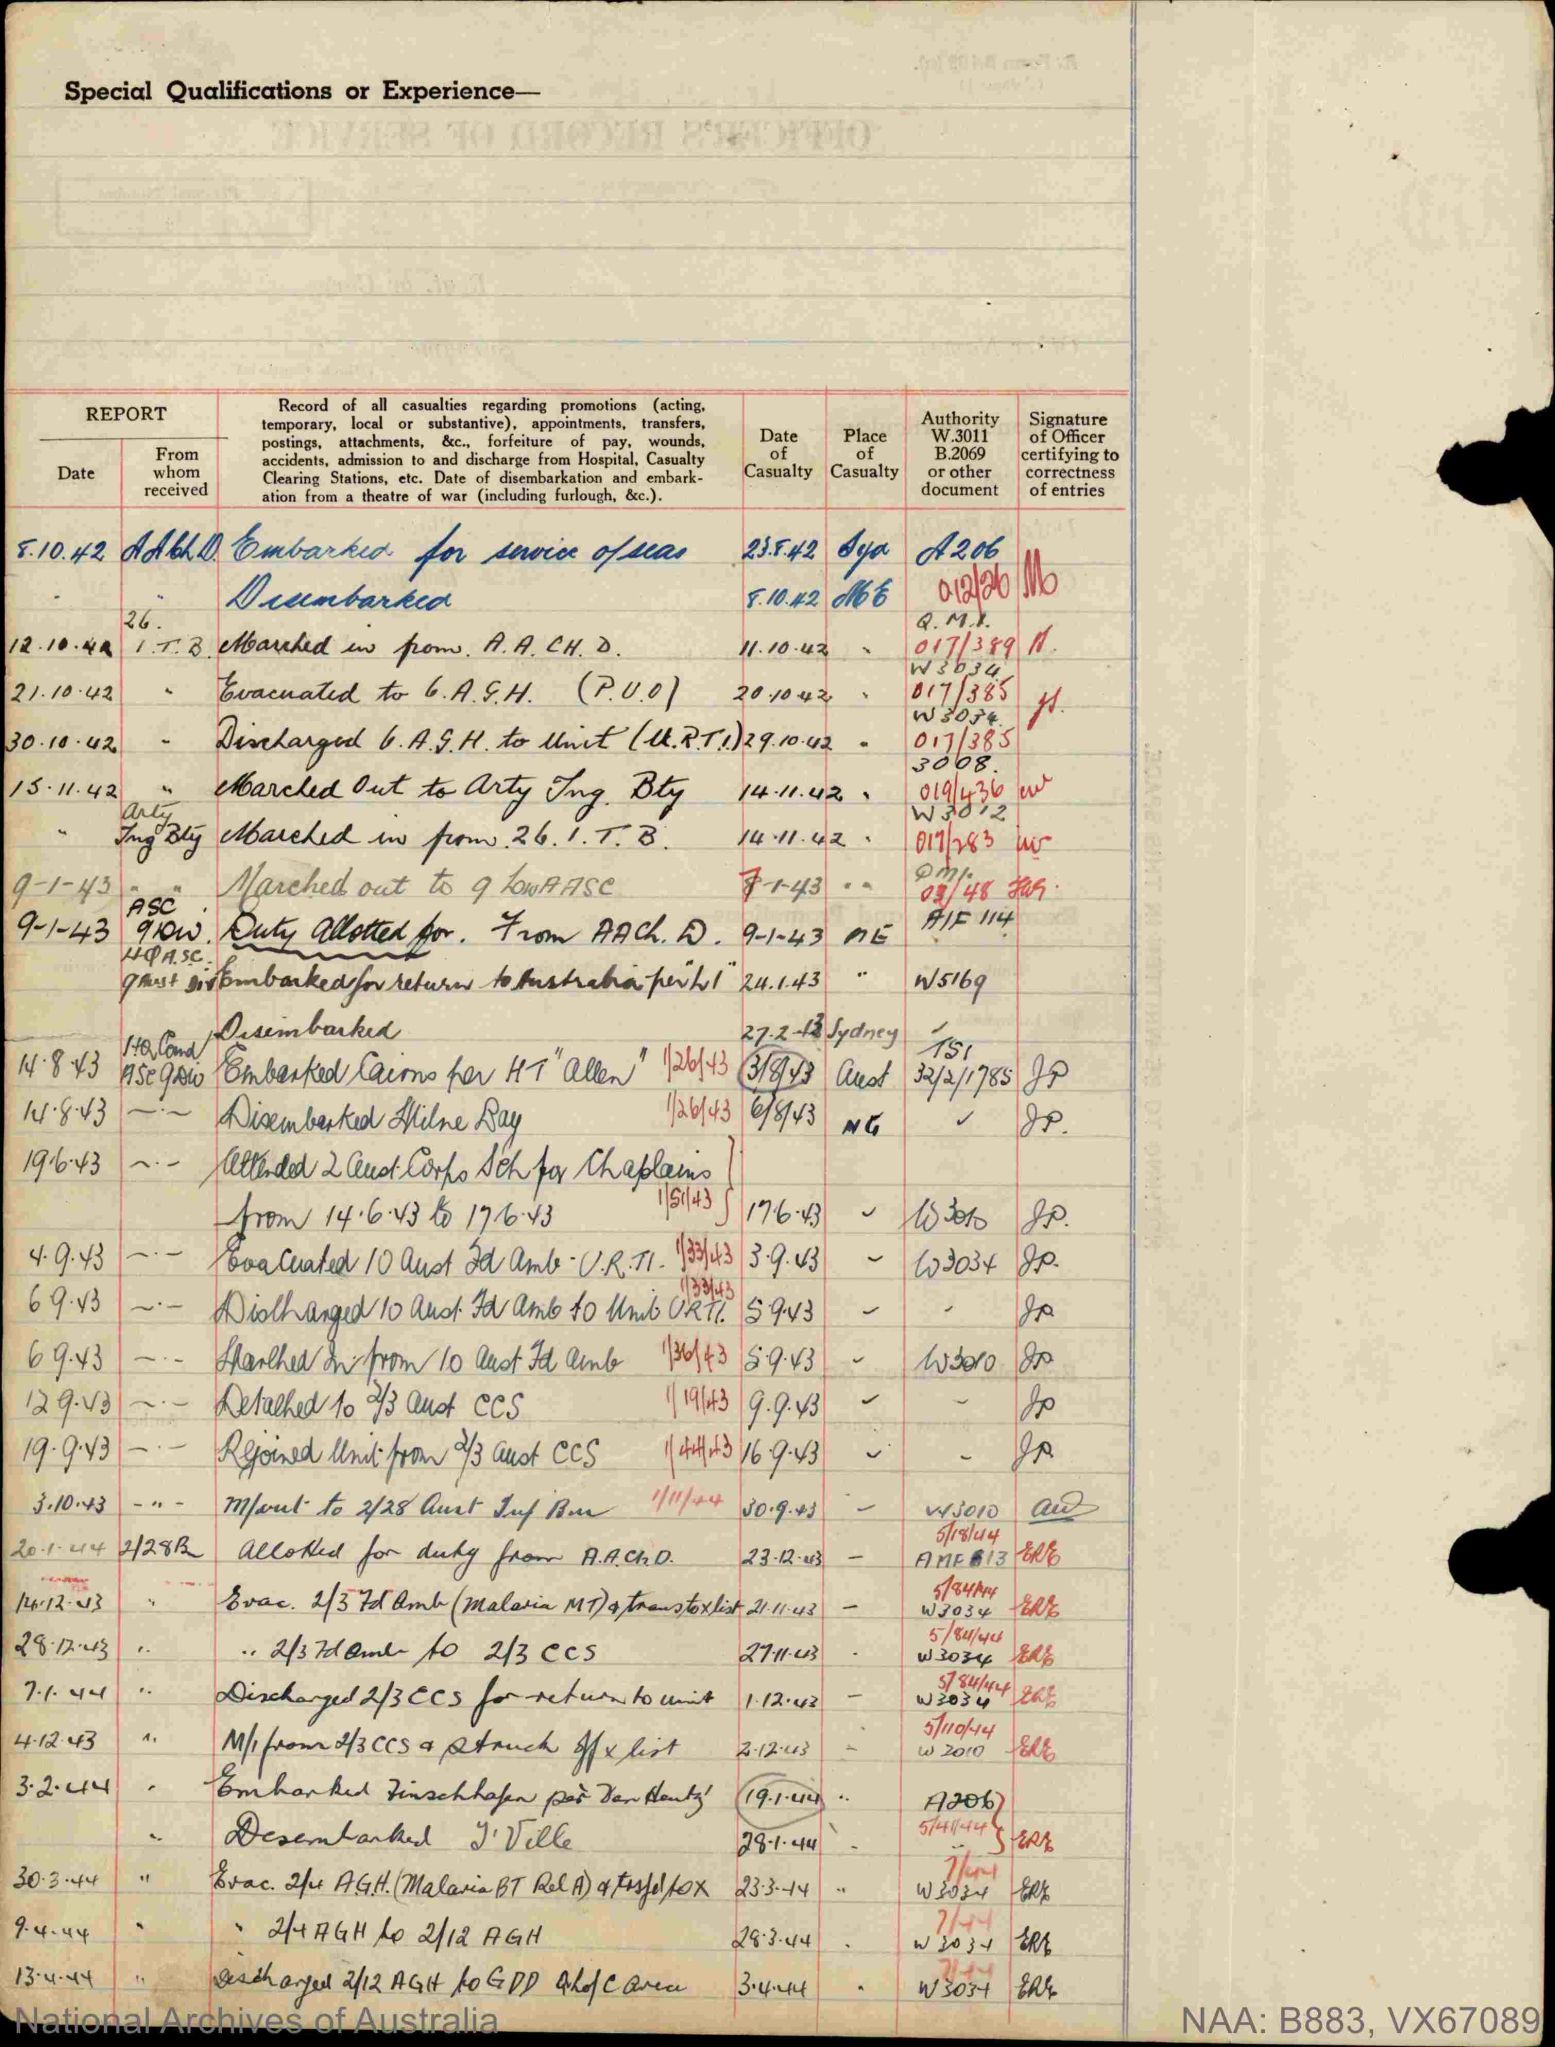 Special Qualifications or Experience—
REPORT
Date
From
whom
received
Record of all casualties regarding promotions (acting,
temporary, local or substantive), appointments, transfers,
postings, attachments, &c., forfeiture of pay, wounds,
accidents, admission to and discharge from Hospital, Casualty
Clearing Stations, etc. Date of disembarkation and embark-
ation from a theatre of war (including furlough, &c.).
Date
of
Casualty
Place
of
Casualty
Authority
W.3011
B.2069
or other
document
Signature
of Officer
certifying to
correctness
of entries
8.10.42 AAChD. Embarked for service o/seas 23.8.42 Syd A206
" " Disembarked 8.10.42 ME 012/26
26. Q.M.I.
12.10.42 I.T.B. Marched in from A.A.CH.D. 11.10.42 " 017/389
W3034
21.10.42 " Evacuated to 6.A.G.H. (P.U.O) 20.10.42 " 017/385
W3034
30.10.42 " Discharged 6.A.G.H. to Unit (U.R.T.I.) 29.10.42 " 017/385
3008.
15.11.42 " Marched Out to Arty Tng. Bty 14.11.42 " 019/436
Arty W3012
" Tng Bty Marched in from 26.I.T.B. 14.11.42 " 017/283
9-1-43 " " Marched out to 9 AASC 7-1-43 " " 03/48
ASC AIF 114
9-1-43 9 Div. Duty Allotted for. From AACh.D. 9-1-43 ME
HQ A.S.C.
9 Aust Div Embarked for return to Australia per 24.1.43 " W5169
Disembarked 27.2.43 Sydney ✓
HQ Comd 151
14.8.43 ASC 9 Div Embarked Cairns per HT "Allen" 1/26/43 3/8/43 Aust 32/2/1785 JP
14.8.43 —·— Disembarked Milne Bay 1/26/43 6/8/43 NG ✓ JP.
19.6.43 —·— Attended 2 Aust Corps Sch for Chaplains
from 14.6.43 to 17.6.43 1/51/43 17.6.43 ✓ W3010 JP.
4.9.43 —·— Evacuated 10 Aust Fd Amb - U.R.TI. 1/33/43 3.9.43 ✓ W3034 JP.
6.9.43 —·— Discharged 10 Aust Fd Amb to Unit URTI. 1/33/43 5.9.43 ✓ ✓ JP
6.9.43 —·— Marched In from 10 Aust Fd Amb 1/36/43 5.9.43 ✓ W3010 JP
12.9.43 —·— Detached to 2/3 Aust CCS 1/19/43 9.9.43 ✓ - JP
19.9.43 —·— Rejoined Unit from 2/3 Aust CCS 1/44/43 16.9.43 ✓ - JP
3.10.43 -"- M/out to 2/28 Aust Inf Bn 1/11/44 30.9.43 - W3010
5/18/44
20.1.44 2/28Bn Allotted for duty from A.A.Ch.D. 23.12.43 - AMF 613 ERE
5/84/44
14.12.43 " Evac. 2/3 Fd Amb (Malaria MT) & trans to x list 21.11.43 - W3034 ERE
5/84/44
28.12.43 " " 2/3 Fd Amb to 2/3 CCS 27.11.43 " W3034 ERE
5/84/44
7.1.44 " Discharged 2/3 CCS for return to unit 1.12.43 - W3034 ERE
5/110/44
4.12.43 " M/I from 2/3 CCS & struck off x list 2.12.43 - W3010 ERE
3.2.44 " Embarked Finschhafen per Van Heutz 19.1.44 " A206
5/41/44
" Desembarked T'Ville 28.1.44 " " ERE
30.3.44 " Evac. 2/4 A.G.H. (Malaria BT Rel A) & trsfd to X 23.3.44 " W3034 ERE
7/44
9.4.44 " " 2/4 AGH to 2/12 AGH 28.3.44 " W3034 ERE
13.4.44 " Discharged 2/12 AGH to GDD area 3.4.44 " W3034 ERE
National Archives of Australia
NAA: B883, VX67089